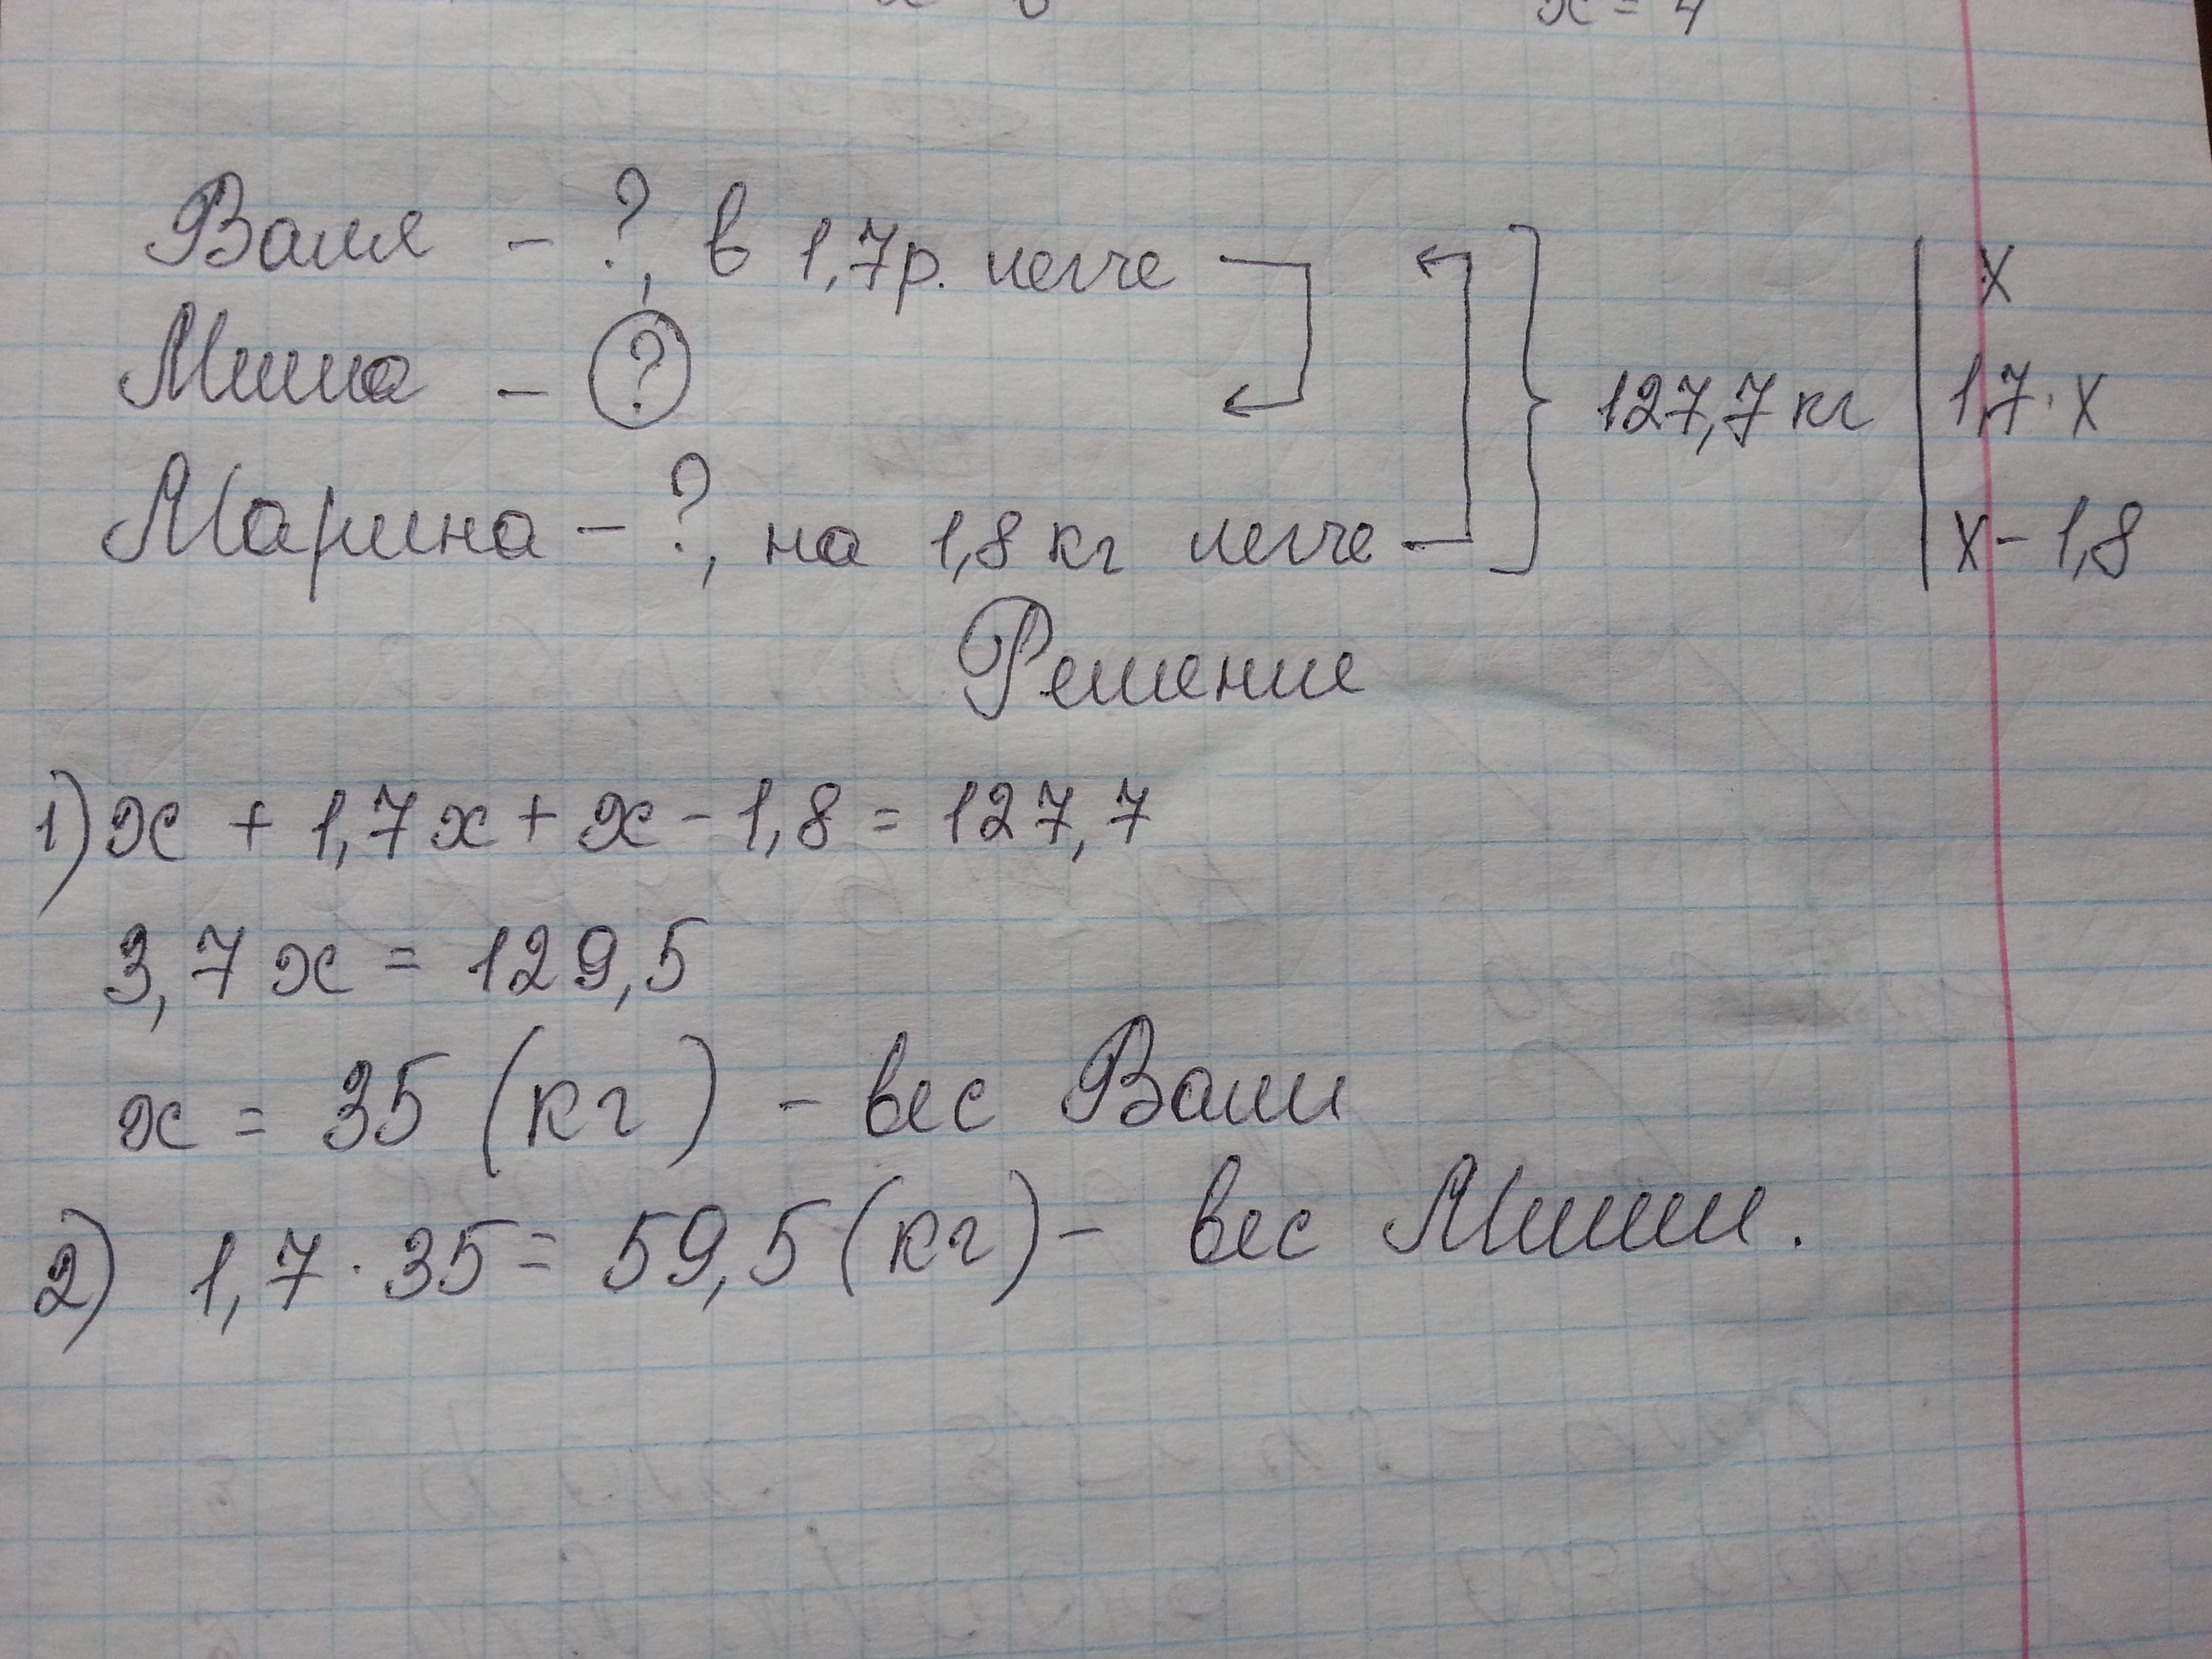 x = 4
Валя - ?, в 1,7 р. легче
Миша - ?
127,7 кг
Марина - ?, на 1,8 кг легче
x
1,7 · x
x - 1,8
Решение
1) x + 1,7x + x - 1,8 = 127,7
3,7x = 129,5
x = 35 (кг) - вес Вали
2) 1,7 · 35 = 59,5 (кг) - вес Миши.